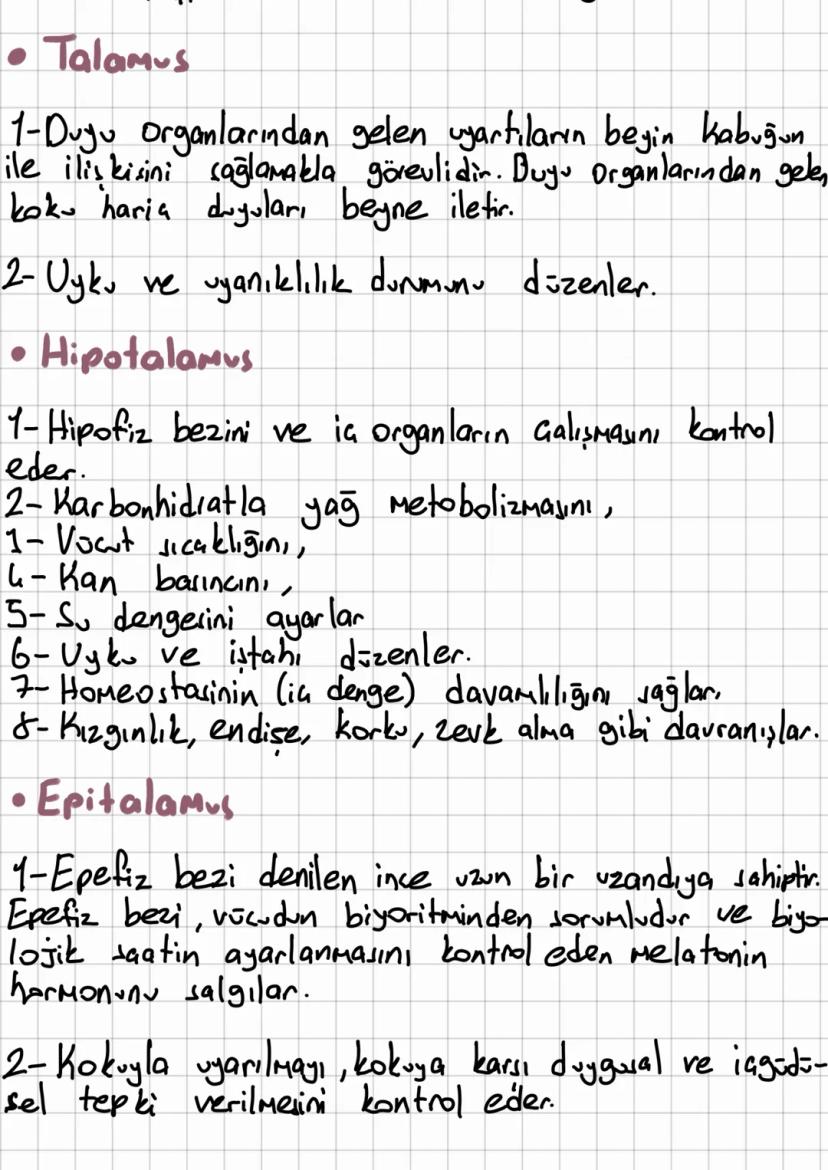 • Talamus
1-Duyu organlarından gelen uyartıların beyin kabuğun
ile ilişkisini sağlamakla görevlidir. Duyu organlarından gelen
koku hariç duyuları beyne iletir.
2- Uyku ve uyanıklılık durumunu düzenler.
• Hipotalamus
1-Hipofiz bezini ve iç organların çalışmasını kontrol
eder.
2- Karbonhidratla yağ metobolizmasını,
1- Vücut sıcaklığını,
4- Kan basıncını,
5- Su dengesini ayarlar
6- Uyku ve iştahı düzenler.
7- Homeostasinin (iç denge) davamlılığını sağlar.
8- Kızgınlık, endişe, korku, zevk alma gibi davranışlar.
• Epitalamus
1-Epefiz bezi denilen ince uzun bir uzandıya sahiptir.
Epefiz bezi, vücudun biyoritminden sorumludur ve biyo-
lojik saatin ayarlanmasını kontrol eden melatonin
hormonunu salgılar.
2- Kokuyla uyarılmayı, kokuya karşı duygusal ve içgüdü-
sel tepki verilmesini kontrol eder.